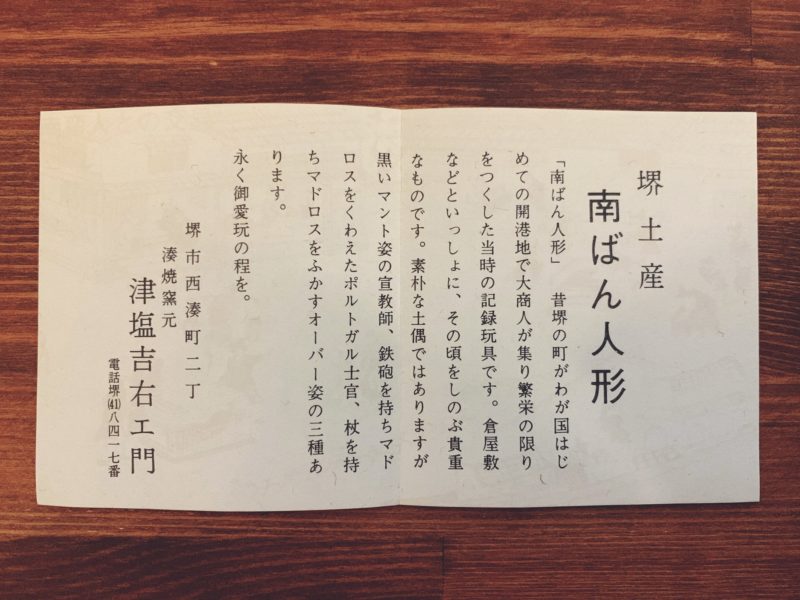 堺土産
南ばん人形
「南ばん人形」　昔堺の町がわが国はじ
めての開港地で大商人が集り繁栄の限り
をつくした当時の記録玩具です。倉屋敷
などといっしょに、その頃をしのぶ貴重
なものです。素朴な土偶ではありますが
黒いマント姿の宣教師、鉄砲を持ちマド
ロスをくわえたポルトガル士官、杖を持
ちマドロスをふかすオーバー姿の三種あ
ります。
永く御愛玩の程を。
堺市西湊町二丁
湊焼窯元
津塩吉右エ門
電話堺(41)八四一七番